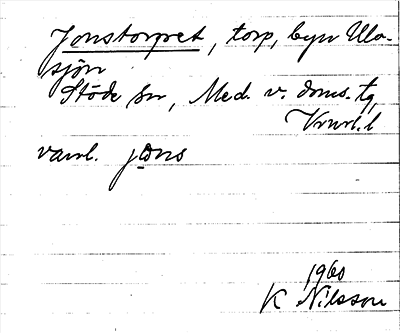 Jonstorpet, torp, byn Ulv-
sjön
Stöde sn, Med. v. doms. tg,
Vnrl. l
vanl. jo̲ns
1960
K Nilsson